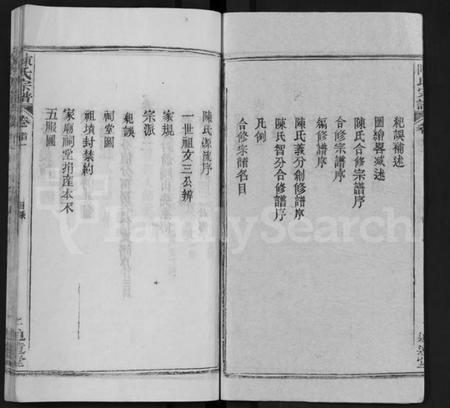 陳氏宗譜
紀誤補述
圖繪畧減述
陳氏合修宗譜序
合修宗譜序
編修譜序
陳氏義分創修譜序
陳氏智分合修譜序
凡例
合修宗譜名目
陳氏源流序
一世祖妣三公辨
家規
宗派
祠堂圖
祖墳封禁約
家廟祠堂捐產本末
五服圖
陳氏宗譜
卷首
目錄
FamilySearch